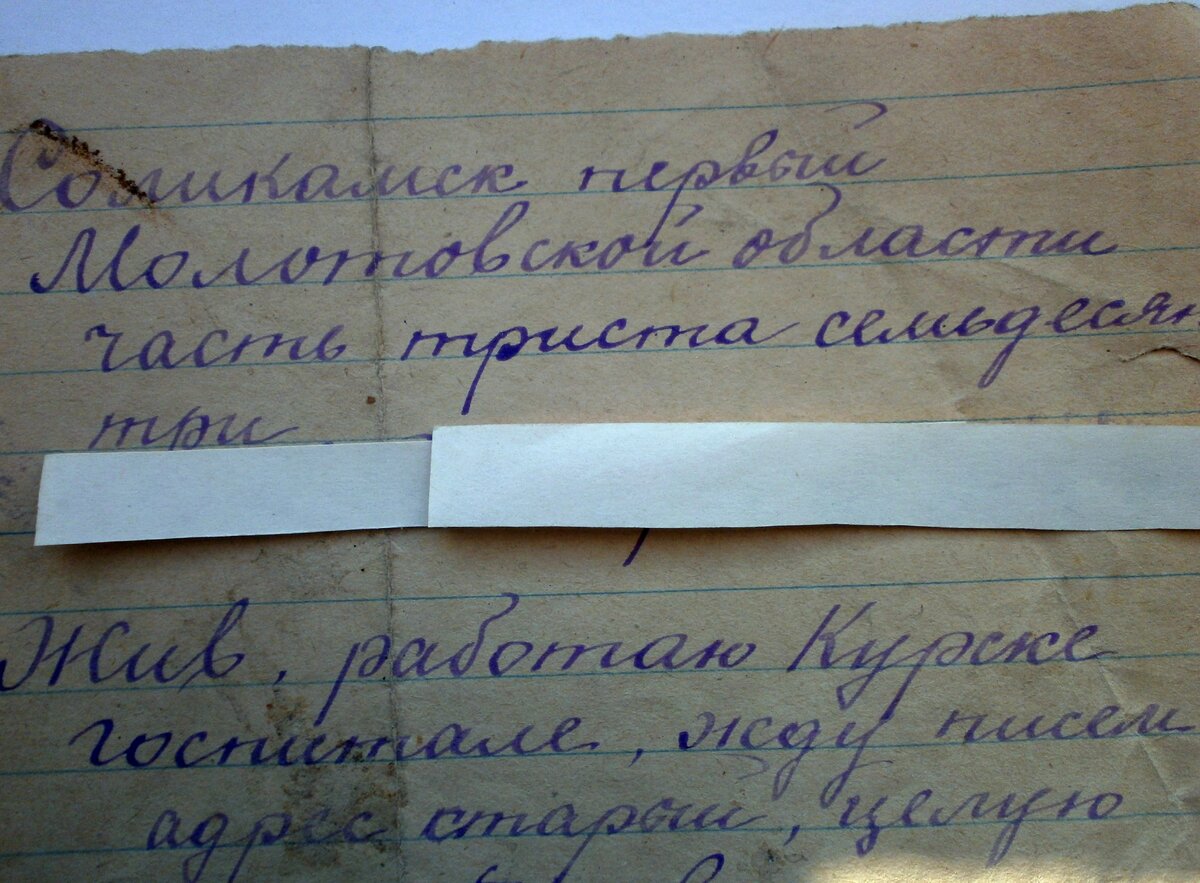 Соликамск первый
Молотовской области
часть триста семьдесят
три
Жив, работаю Курске
госпитале, жду писем
адрес старый, целую